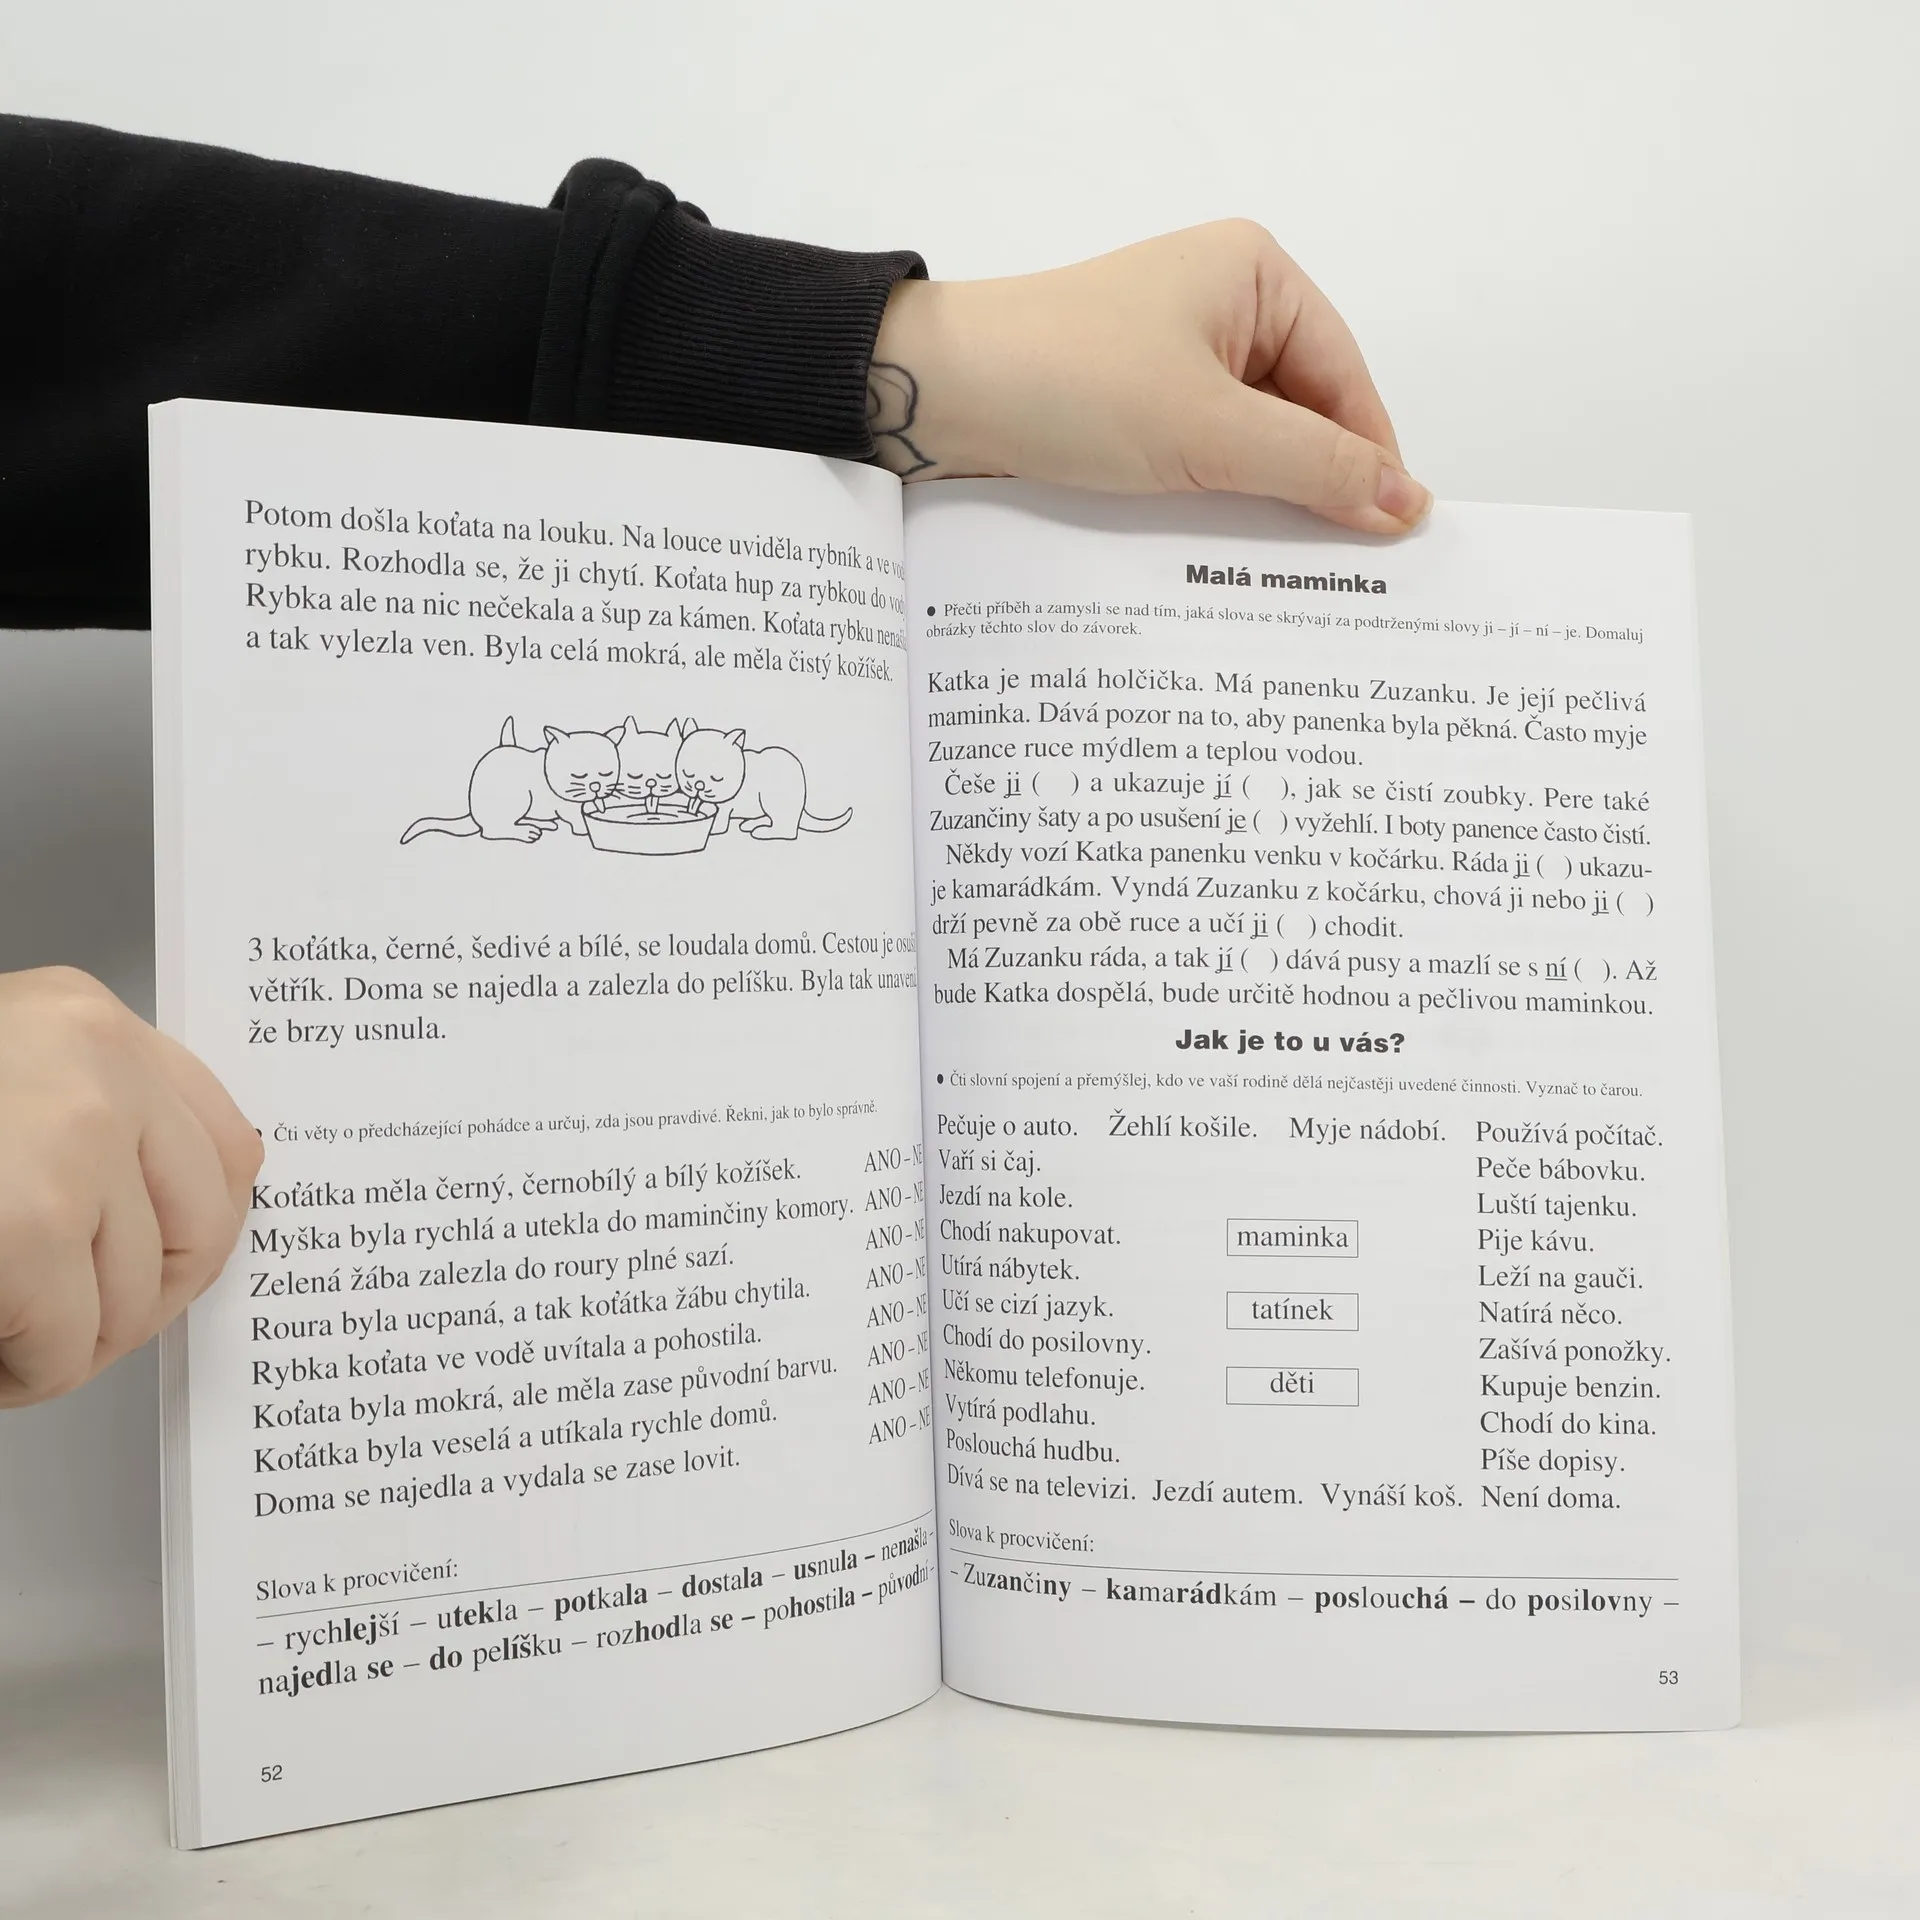 Potom došla koťata na louku. Na louce uviděla rybník a ve
rybku. Rozhodla se, že ji chytí. Koťata hup za rybkou do
Rybka ale na nic nečekala a šup za kámen. Koťata rybku
a tak vylezla ven. Byla celá mokrá, ale měla čistý kožíšek.
3 koťátka, černé, šedivé a bílé, se loudala domů. Cestou je
větřík. Doma se najedla a zalezla do pelíšku. Byla tak
že brzy usnula.
Čti věty o předcházející pohádce a určuj, zda jsou pravdivé. Řekni, jak to bylo správně.
Koťátka měla černý, černobílý a bílý kožíšek. ANO – NE
Myška byla rychlá a utekla do maminčiny komory. ANO – NE
Zelená žába zalezla do roury plné sazí. ANO – NE
Roura byla ucpaná, a tak koťátka žábu chytila. ANO – NE
Rybka koťata ve vodě uvítala a pohostila. ANO – NE
Koťata byla mokrá, ale měla zase původní barvu. ANO – NE
Koťátka byla veselá a utíkala rychle domů. ANO – NE
Doma se najedla a vydala se zase lovit. ANO – NE
Slova k procvičení:
– rychlejší – utekla – potkala – dostala – usnula – nenašla –
najedla se – do pelíšku – rozhodla se – pohostila – původní –
52
Malá maminka
● Přečti příběh a zamysli se nad tím, jaká slova se skrývají za podtrženými slovy ji – jí – ní – je. Domaluj
obrázky těchto slov do závorek.
Katka je malá holčička. Má panenku Zuzanku. Je její pečlivá
maminka. Dává pozor na to, aby panenka byla pěkná. Často myje
Zuzance ruce mýdlem a teplou vodou.
Češe ji ( ) a ukazuje jí ( ), jak se čistí zoubky. Pere také
Zuzančiny šaty a po usušení je ( ) vyžehlí. I boty panence často čistí.
Někdy vozí Katka panenku venku v kočárku. Ráda ji ( ) ukazu-
je kamarádkám. Vyndá Zuzanku z kočárku, chová ji nebo ji ( )
drží pevně za obě ruce a učí ji ( ) chodit.
Má Zuzanku ráda, a tak jí ( ) dává pusy a mazlí se s ní ( ). Až
bude Katka dospělá, bude určitě hodnou a pečlivou maminkou.
Jak je to u vás?
● Čti slovní spojení a přemýšlej, kdo ve vaší rodině dělá nejčastěji uvedené činnosti. Vyznač to čarou.
Pečuje o auto. Žehlí košile. Myje nádobí. Používá počítač.
Vaří si čaj. Peče bábovku.
Jezdí na kole. Luští tajenku.
Chodí nakupovat. maminka Pije kávu.
Utírá nábytek. Leží na gauči.
Učí se cizí jazyk. tatínek Natírá něco.
Chodí do posilovny. Zašívá ponožky.
Někomu telefonuje. děti Kupuje benzin.
Vytírá podlahu. Chodí do kina.
Poslouchá hudbu. Píše dopisy.
Dívá se na televizi. Jezdí autem. Vynáší koš. Není doma.
Slova k procvičení:
– Zuzančiny – kamarádkám – poslouchá – do posilovny –
53